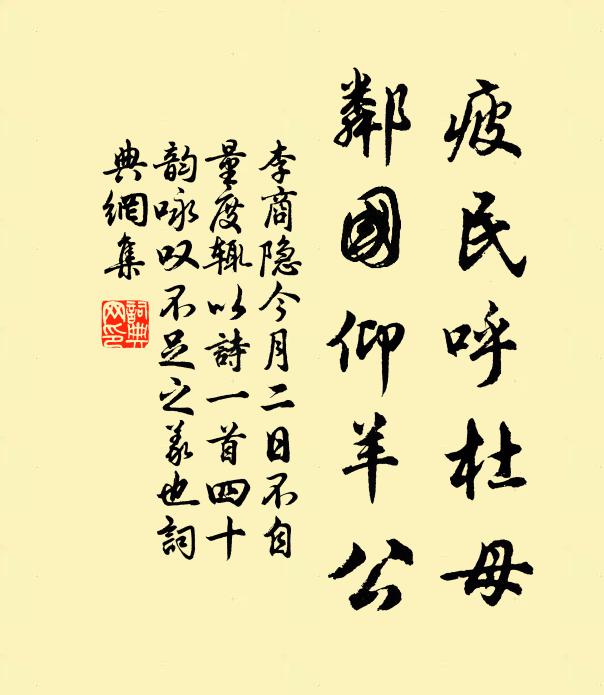 疲民呼杜母
鄰國仰羊公
李商隐今月二日不自
量度輒以詩一首四十
韵咏叹不足之義也詞
典網集
詞典
网印